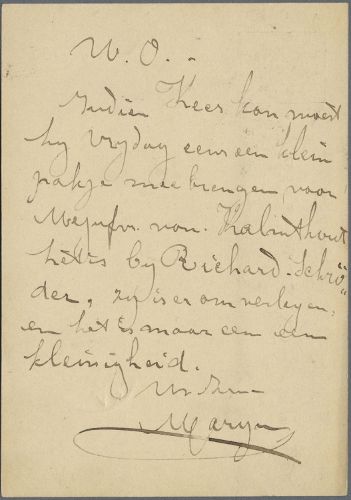 W. O. -
Indien Kees kan moest
hy Vrydag eens een klein
pakje meebrengen voor
Mejufvr. von. Kalmthout
het is by Richard. Schrö
der, zy is er om verlegen,
en het is maar een een
kleinigheid.